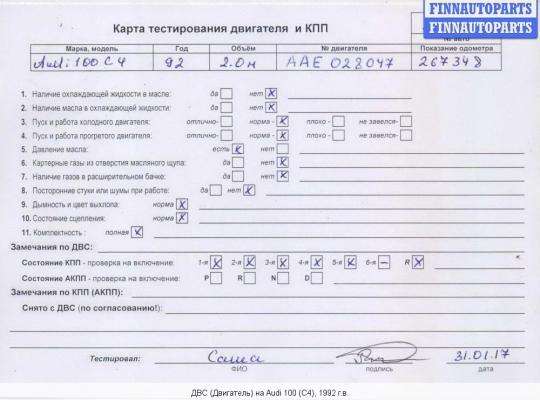 FINNAUTOPARTS
FINNAUTOPARTS
Карта тестирования двигателя и КПП
№ авто
Марка, модель Год Объём № двигателя Показание одометра
Audi 100 C4 92 2.0 м AAE 028047 267348
1. Наличие охлаждающей жидкости в масле: да нет X
2. Наличие масла в охлаждающей жидкости: да нет X
3. Пуск и работа холодного двигателя: отлично- норма - X плохо - не завелся-
4. Пуск и работа прогретого двигателя: отлично- норма - X плохо - не завелся-
5. Давление масла: есть X нет
6. Картерные газы из отверстия масляного щупа: да нет X
7. Наличие газов в расширительном бачке: да нет X
8. Посторонние стуки или шумы при работе: да нет X
9. Дымность и цвет выхлопа: норма X
10. Состояние сцепления: норма X
11. Комплектность : полная X
Замечания по ДВС:
Состояние КПП - проверка на включение: 1-я X 2-я X 3-я X 4-я X 5-я X 6-я – R X
Состояние АКПП - проверка на включение: P R N D
Замечания по КПП (АКПП):
Снято с ДВС (по согласованию!):
Тестировал: Саша 31.01.17
ФИО подпись дата
ДВС (Двигатель) на Audi 100 (C4), 1992 г.в.